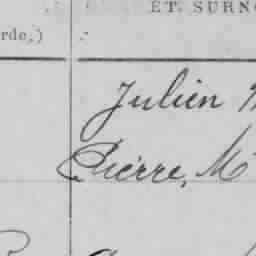 ET SURN
rde,)
Julien
Pierre, M